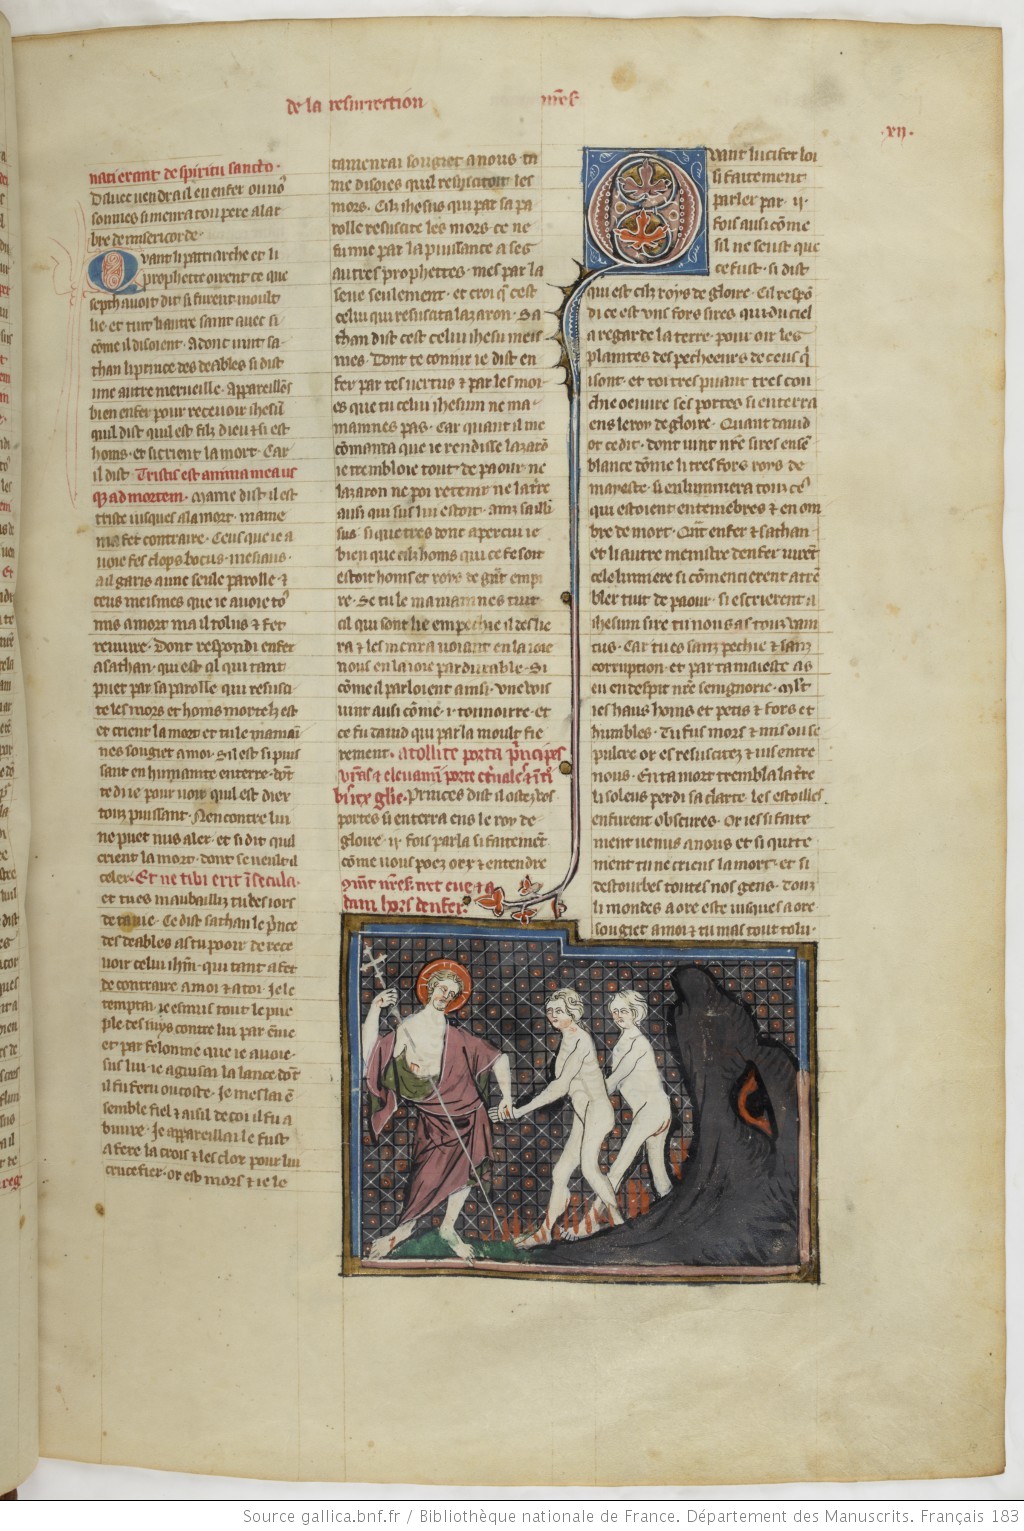 de la resurrection nr̃e s̃.
.xii.
nati erant de spiritu sancto.
Diluec uendra il en enfer ou no᷒
sommes si menra ton pere al ar
bre de misericorde.
Quant li patriarche et li
prophette oirent ce que
seph auoit dit si furent moult
lie et tuit li autre saint auec si
cōme il disoient. Adont uint sa
than li prince des deables si dist
une autre merueille. Appareilliés
bien enfer pour receuoir ihesum
qui dist quil est filz dieu et si est
homs. et si crient la mort. Car
il dist. Tristis est anima mea us
q; ad mortem. Mame dist il est
triste iusques a la mort. mame
ma fet contraire. Ceus que ie a
uoie fes clops bocus. mesiaus.
ail garis a une seule parolle. et
ceus meismes que ie auoie to᷒
mis a mort ma il tolus et fet
reuiure. Dont respondi enfer
a sathan. qui est cil qui tant
puet par sa parolle. qui resusci
te les mors et homs mortelz est
et crient la mort et tu le mamain
nes sougiet a moi. Sil est si puis
sant en humanite enterre. dōt
te di ie pour uoir quil est dieu
touz puissant. Nencontre lui
ne puet nus aler. et si dit quil
crient la mort. dont se ueult il
celer. Et ne tibi erit ī secula.
et tu es maubailliz tu des iors
de ta uie. Ce dist sathan le p̄nce
des deables as tu poour de rece
uoir celui ihm̄. qui tant a fet
de contraire a moi et a toi. Je le
temptai. ie esmus tout le pue
ple des iuys contre lui par enuie
et par felonnie que ie auoie
sus lui. ie aguisai la lance dōt
il fu feru ou coste. Je meslai en
semble fiel et aisil de coi il fu a
buure. Je appareillai le fust
a fere la crois et les clox pour lui
crucefier. or est mors et ie le
tamenrai sougiet a nous. tu
me disoies quil resuscitoit les
mors. Cilz ihesus qui par sa pa
rolle resuscite les mors ce ne
fu mie par la puissance a ses
autres prophettes. mes par la
seue seulement. et croi q̄ cest
celui qui resuscita lazaron. Sa
than dist cest celui ihesu meis
mes. Dont te coniur ie dist en
fer par tes uertus et par les moi
es que tu celui ihesum ne ma
mainnes pas. Car quant il me
cōmanta que ie rendisse lazarō
ie trembloie tout de paour. ne
lazaron ne poi retenir ne la tr̄re
ausi qui sus lui estoit. ainz sailli
sus si que tres donc apercui ie
bien que cilz homs qui ce fesoit
estoit homs et roys de grāt empi
re. Se tu le mamainnes tuit
cil qui sont lie en pechie il deslie
ra et les menra uoiant en la ioie
nous en la ioie pardurable. Si
cōme il parloient ainsi. une uois
uint ausi cōme .i. tonnoirre. et
ce fu dauid qui parla moult fie
rement. Atollite porta p̄ncipes
ur̄as et eleuamī porte et̄nales et ītr̄o
bit rex gl̄ie. Princes dist il ostez uos
portes si enterra ens le roy de
gloire. ii. fois parla si faitemēt
cōme uous poez oir et entendre
Cōm̄t nr̃e s̃. tret eue et a
dam hors denfer.
Quant lucifer loi
si faitement
parler par .ii.
fois ausi cōme
sil ne seust que
ce fust. si dist
qui est cilz roys de gloire. Cil respō
di ce est uns fors sires qui du ciel
a regarde la terre. pour oir les
plaintes des pecheeurs de ceus q̄
i sont. et toi tres puant tres cou
chie oeuure ses portes si enterra
ens le roy de gloire. Quant dauid
ot ce dit. dont uint nr̄e sires en se
blance dōme li tres fors roys de
mayeste. si enlumina touz ce᷒
qui estoient en tenebres et en om
bre de mort. Qn̄t enfer et sathan
et li autre menistre denfer uirēt
cele lumiere si cōmencierent a trē
bler tuit de paour. si escrierent a
ihesum sire tu nous as touz uain
cus. Car tu es sanz pechie et sanz
corruption. et par ta maieste as
eu en despit nr̄e seingnorie. Mlt̄
ies haus homs et petis et fors et
humbles. Tu fus mors et mis ou se
pulcre or es resuscitez et uis entre
nous. En ta mort trembla la tr̄re
li soleus perdi sa clarte. les estoilles.
en furent obscures. Or ies si faite
ment uenus a nous et si quite
ment tu ne criens la mort. et si
destourbes toutes nos gens. Touz
li mondes a ore este iusques a ore
sougiet a moi et tu mas tout tolu.
Source gallica.bnf.fr / Bibliothèque nationale de France. Département des Manuscrits. Français 183